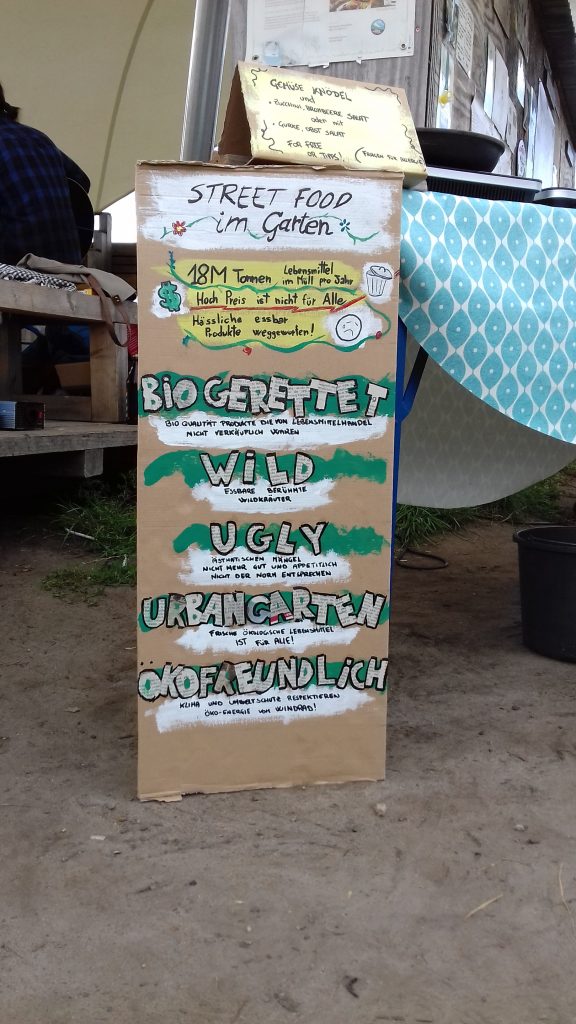 GEMÜSE KNÖDEL
und
• ZUCCHINI, BROMBEERE SALAT
oder mit
• GURKE, OBST SALAT
FOR FREE
OR TIPPS!
(FRAGEN FÜR ALLERGIE)
STREET FOOD
im Garten
18M Tonnen Lebensmittel
im Müll pro Jahr
Hoch Preis ist nicht für Alle
Hässliche essbar
Produkte weggeworfen!
BIO GERETTET
BIO QUALITÄT PRODUKTE DIE VON LEBENSMITTELHANDEL
NICHT VERKÄUFLICH WAREN
WILD
ESSBARE BERÜHMTE
WILDKRÄUTER
UGLY
ÄSTHATISCHEN MÄNGEL
NICHT MEHR GUT UND APPETITLICH
NICHT DER NORM ENTSPRECHEN
URBANGARTEN
FRISCHE ÖKOLOGISCHE LEBENSMITTEL
IST FÜR ALLE!
ÖKOFREUNDLICH
KLIMA UND UMWELTSCHUTZ RESPEKTIEREN
ÖKO-ENERGIE VOM WINDRAD!